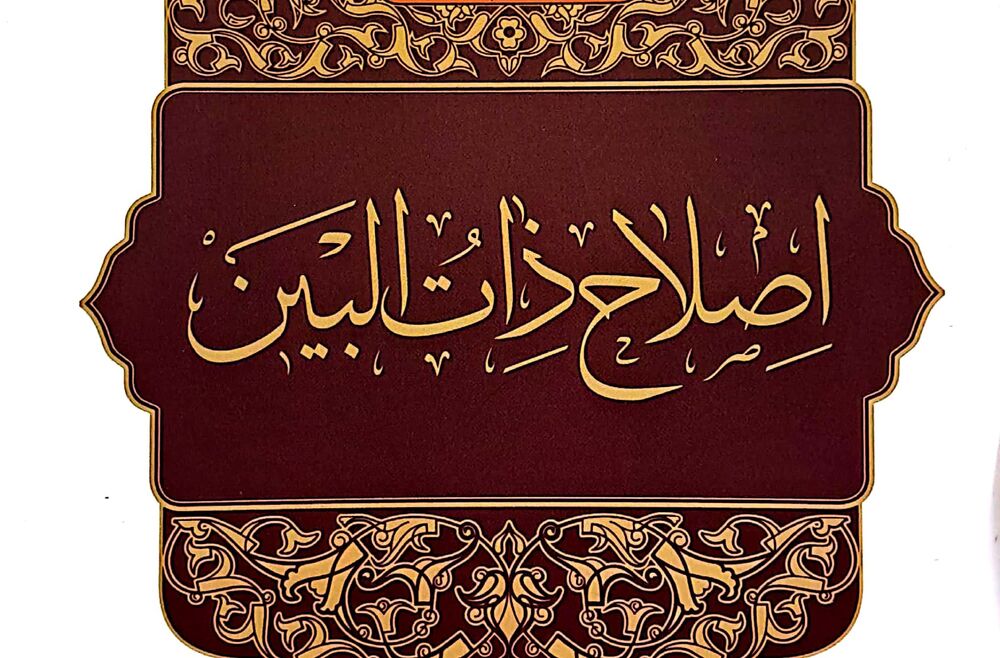 إِصلاح ذِات البين